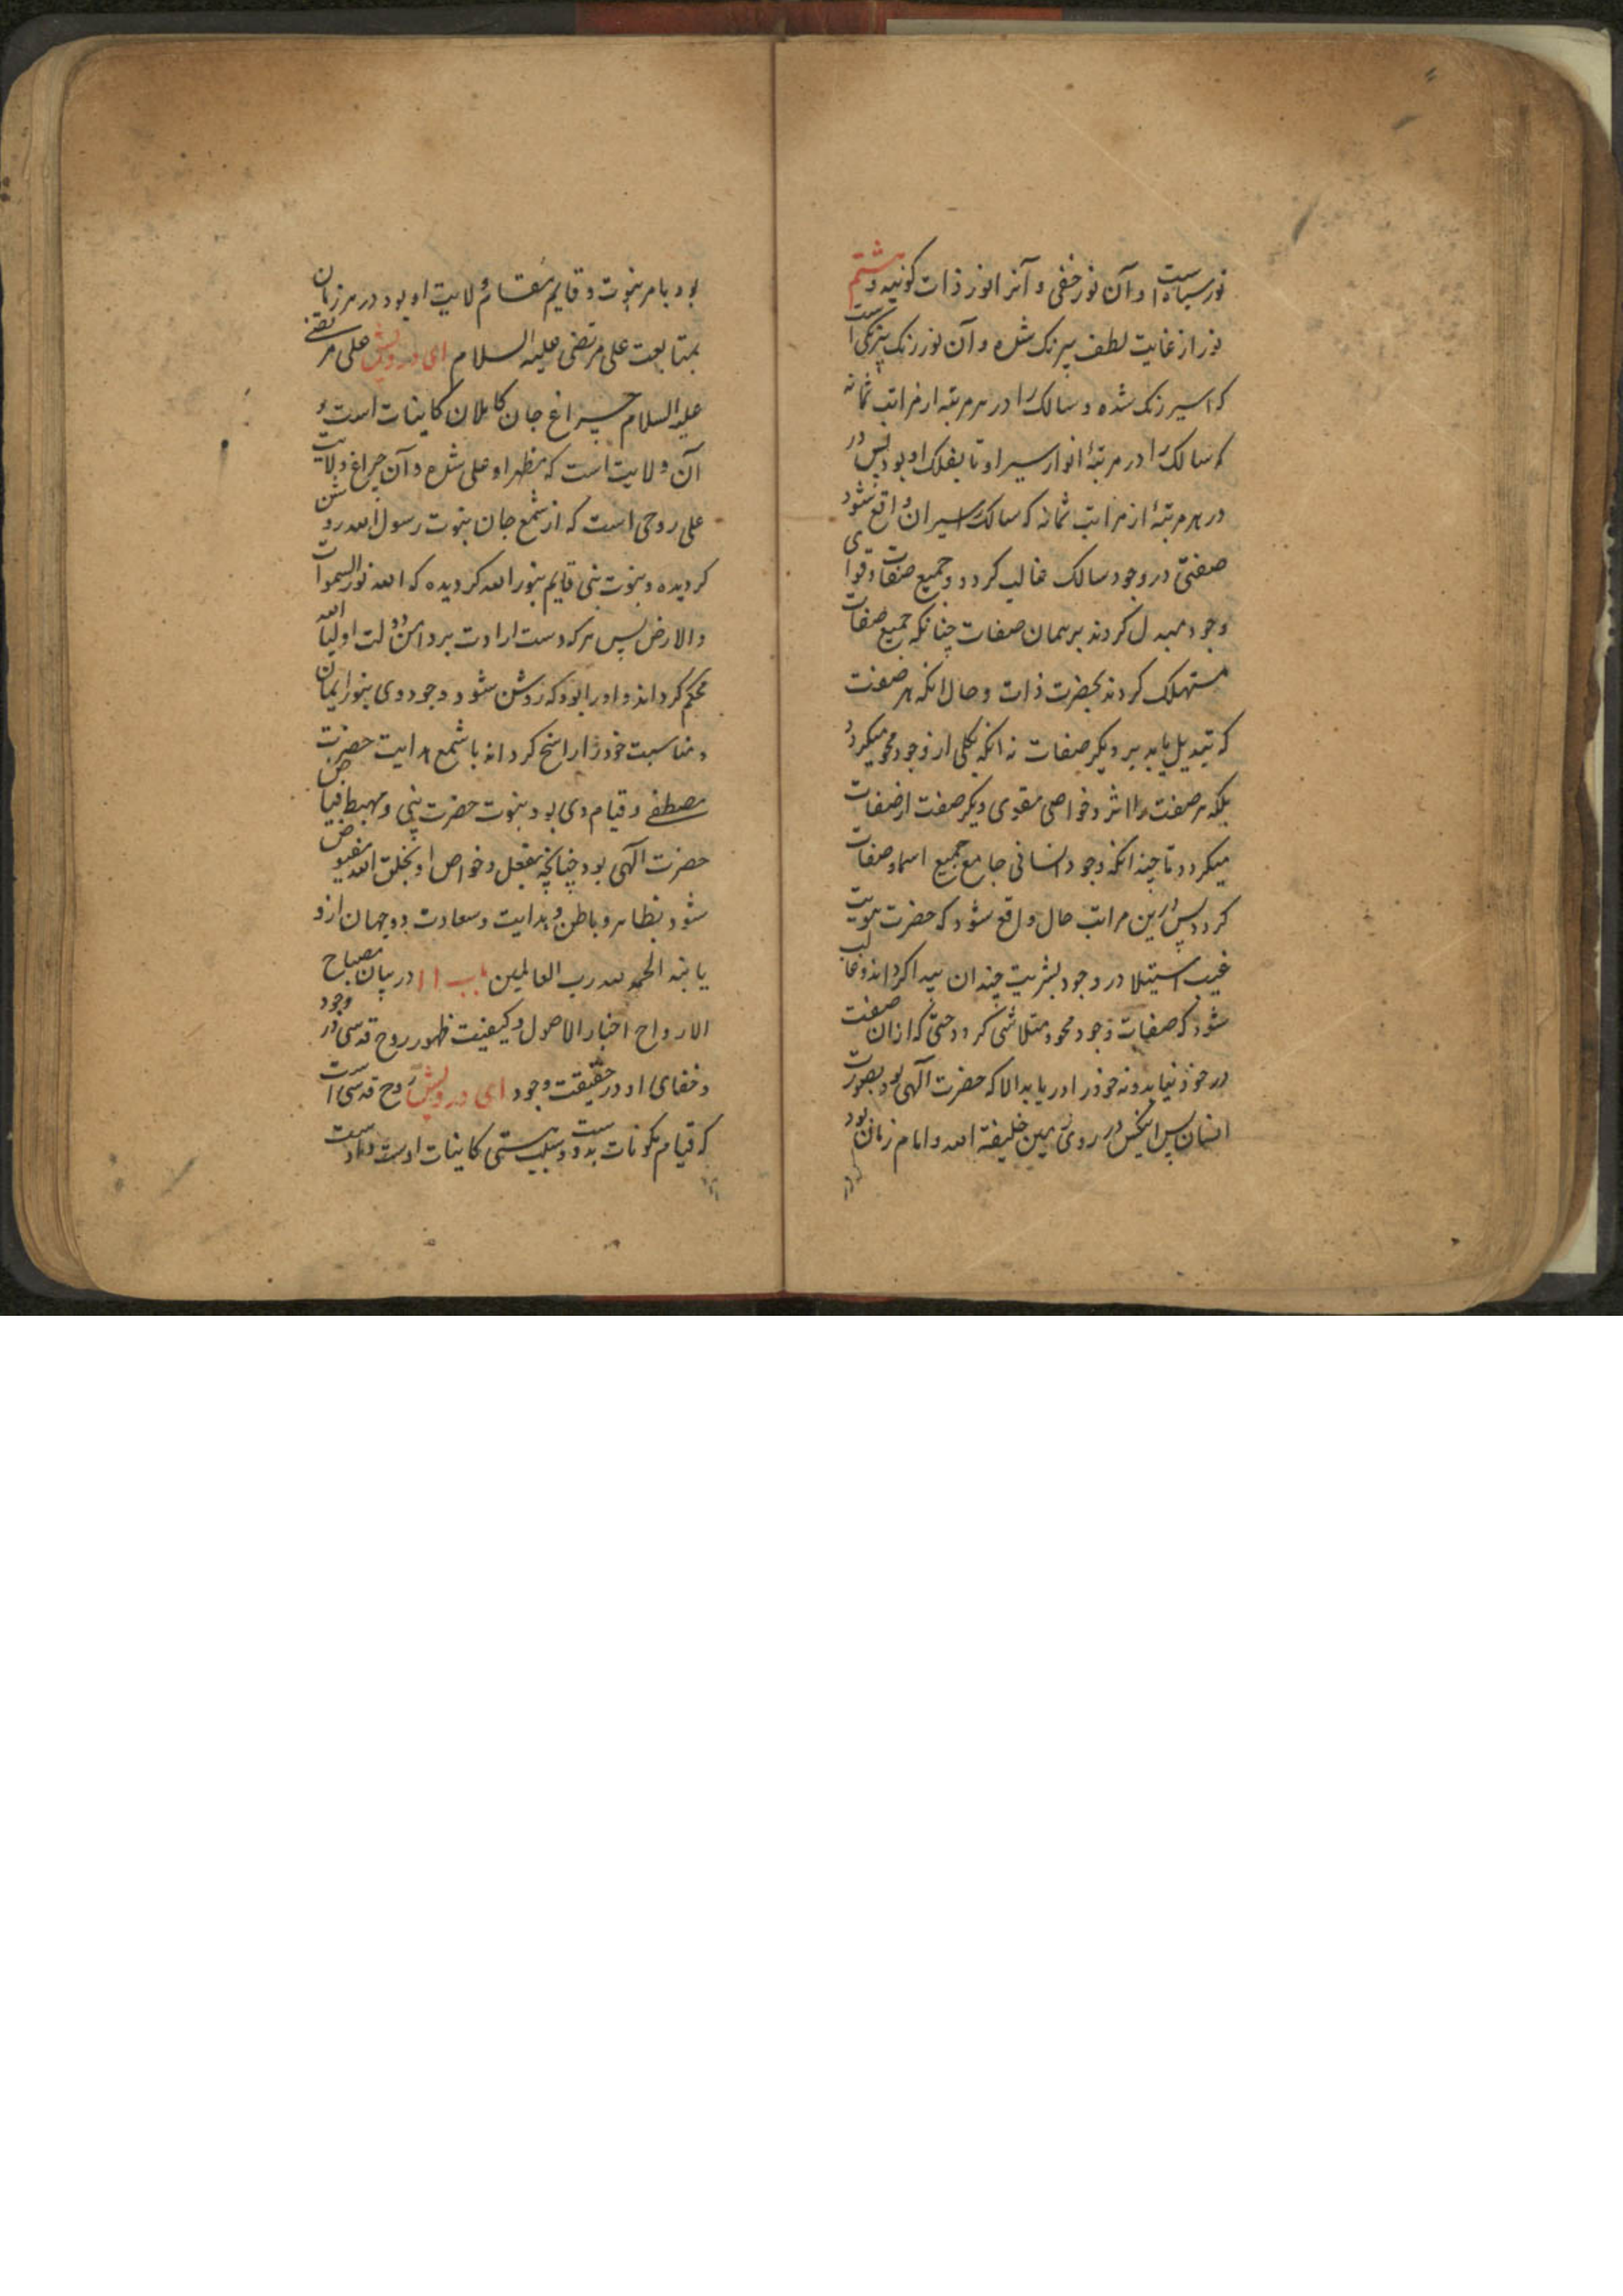 نور سیاه است و آن نور خفی و آنرا نور ذات کونیه و هشتم
نور از غایت لطف بیرنک شده و آن نور رنک بیرنکی است
که اسیر رنک شده و سالک را در هر مرتبه از مراتب ثمانه
که سالک را در مرتبهٔ انوار سیر اوتا بفلک او بود پس در
در هر مرتبهٔ از مراتب ثمانه که سالک را سیران واقع شود
صفتی در وجود سالک غالب کردد و جمیع صفات و قوای
وجود مبدل کردند بر همان صفات چنانکه جمیع صفات
مستهلک کردند بحضرت ذات و حال انکه هر صفت
که تبدیل یابد بر دیکر صفات نه انکه بکلی از وجود محو میکردد
بلکه هر صفت را اثر و خواصی مقوی دیکر صفت از صفات
میکردد تا چندانکه وجود انسانی جامع جمیع اسما و صفات
کردد پس درین مراتب حال واقع شود که حضرت هویت
غیب استیلا در وجود بشریت چندان پیدا کرداند و غالب
شود که صفات وجود محو و متلاشی کردد حتی که ازان صفت
در خود نیابد و نه خود را دریابد الا که حضرت الهی بود بصورت
انسان پس اینکس در روی زمین خلیفة الله و امام زمان بود
بود بامر نبوت و قایم مقام ولایت او بود در هر زمان
بمتابعت علی مرتضی علیه السلام ای درویش علی مرتضی
علیه السلام چراغ جان کاملان کاینات است و
آن ولایت است که مظهر او علی شده و آن چراغ ولایت
علی روحی است که از شمع جان نبوت رسول الله روشن
کردیده و نبوت نبی قایم بنور الله کردیده که الله نور السموات
والارض پس هر که دست ارادت بر دامن دولت اولیا الله
محکم کرداند و او را بود که روشن شود وجود وی بنور ایمان
و مناسبت خود را راسخ کرداند با شمع هدایت حضرت
مصطفی و قیام وی بود بنبوت حضرت نبی و مهبط فیاض
حضرت الهی بود چنانچه بفعل و خواص او بخلق الله مفیوض
شود بظاهر و باطن و هدایت و سعادت دو جهان ازو
یابند الحمد لله رب العالمین باب ۱۱ در بیان مصباح
الارواح اخبار الاصول و کیفیت ظهور روح قدسی در وجود
و خفای او در حقیقت وجود ای درویش روح قدسی است
که قیام مکونات بدوست و هستی کاینات اوست